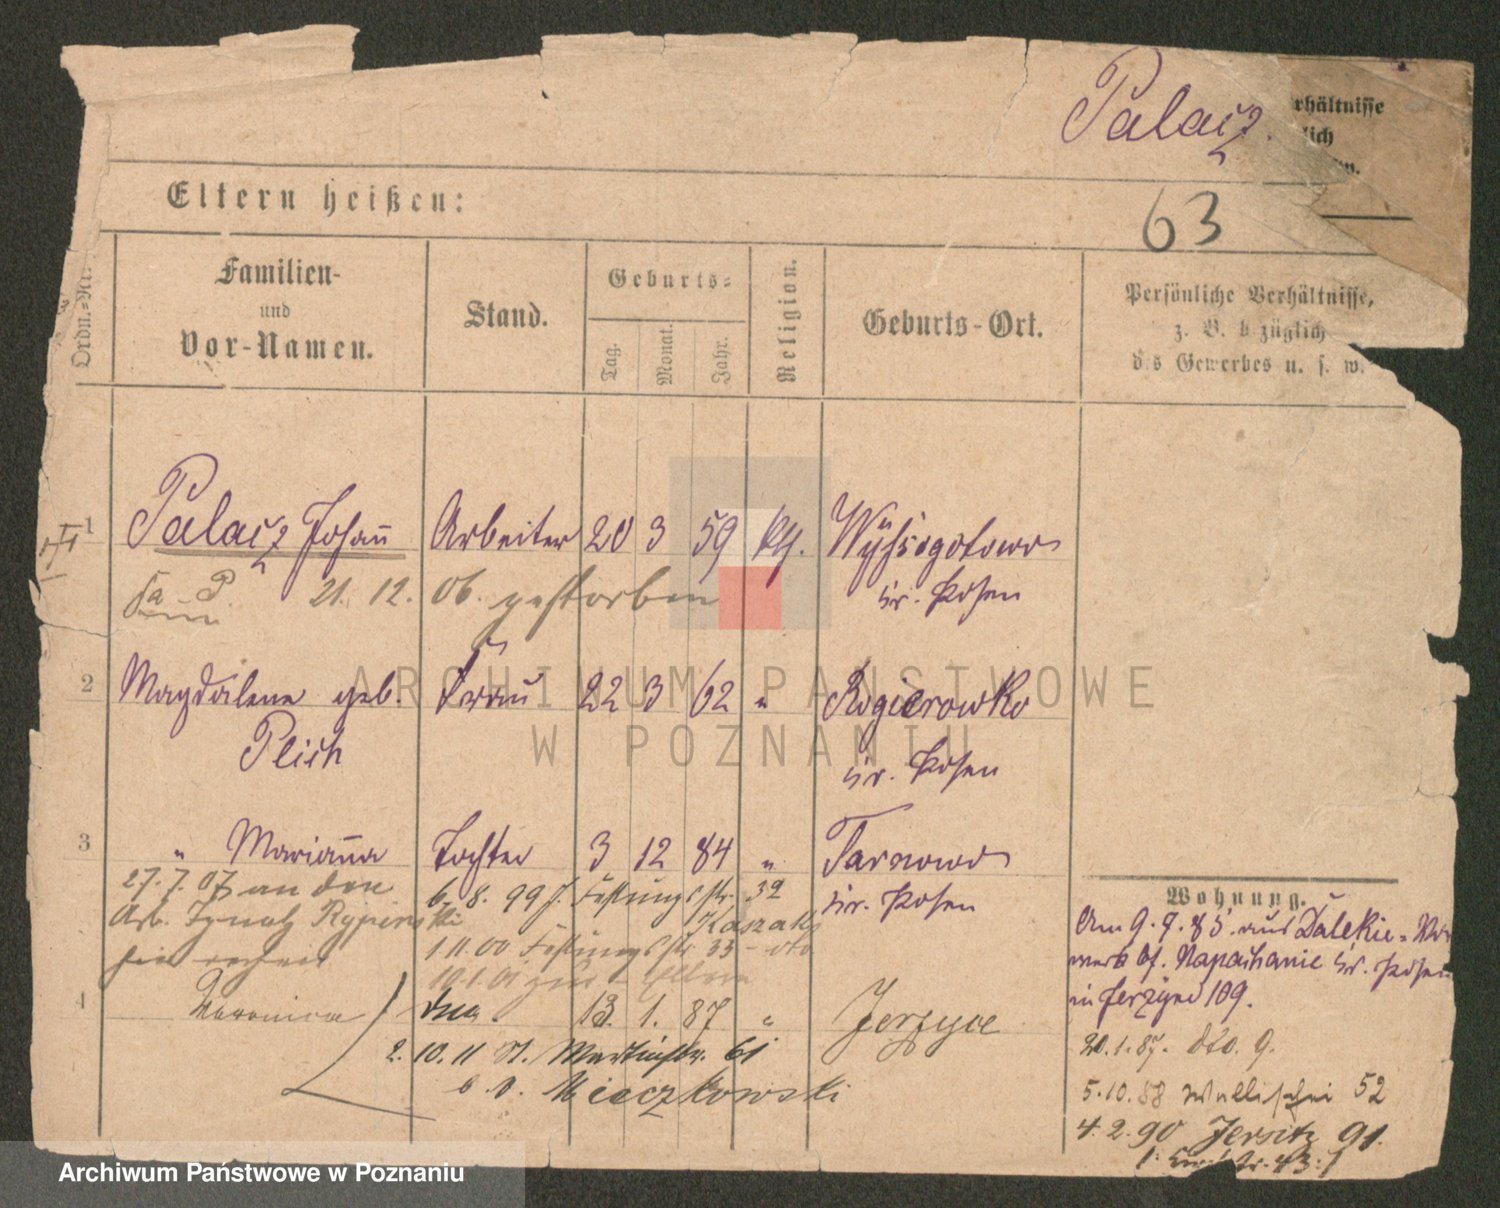 Palacz.
rhältnisse
lich
w.
Eltern heißen:
63
Ordn.-Nr.
Familien-
und
Vor-Namen.
Stand.
Geburts-
Tag.
Monat.
Jahr.
Religion.
Geburts-Ort.
Persönliche Verhältnisse,
z. B. b züglich
d.s Gewerbes u. s. w.
1 Palacz Johann Arbeiter 20 3 59 kth. Wyssogotowo
Kr. Posen
21. 12. 06. gestorben
2 Magdalene geb. Frau 22 3 62 " Rogierowko
Plich
Kr. Posen
3 " Marianna Tochter 3 12 84 " Tarnowo
Kr. Posen
27. 7. 07 an den 6. 8. 99 J. Festungsstr. 32
Arb. Ignatz Rypinski Kaszak
1.11.00 Festungsstr. 33 - dto
4 Veronica dto. 13. 1. 87 " Jerzyce
2. 10. 11 St. Martinstr. 61
b. Mieczkowski
Wohnung.
Am 9. 7. 85 aus Dalekie-Vor
werk bf. Napachanie Kr. Posen
in Jerzyce 109.
20.1.87. dto. 9.
5.10.88 Wallischei 52
4. 2. 90 Jersitz 91.
ARCHIWUM PAŃSTWOWE
W POZNANIU
Archiwum Państwowe w Poznaniu